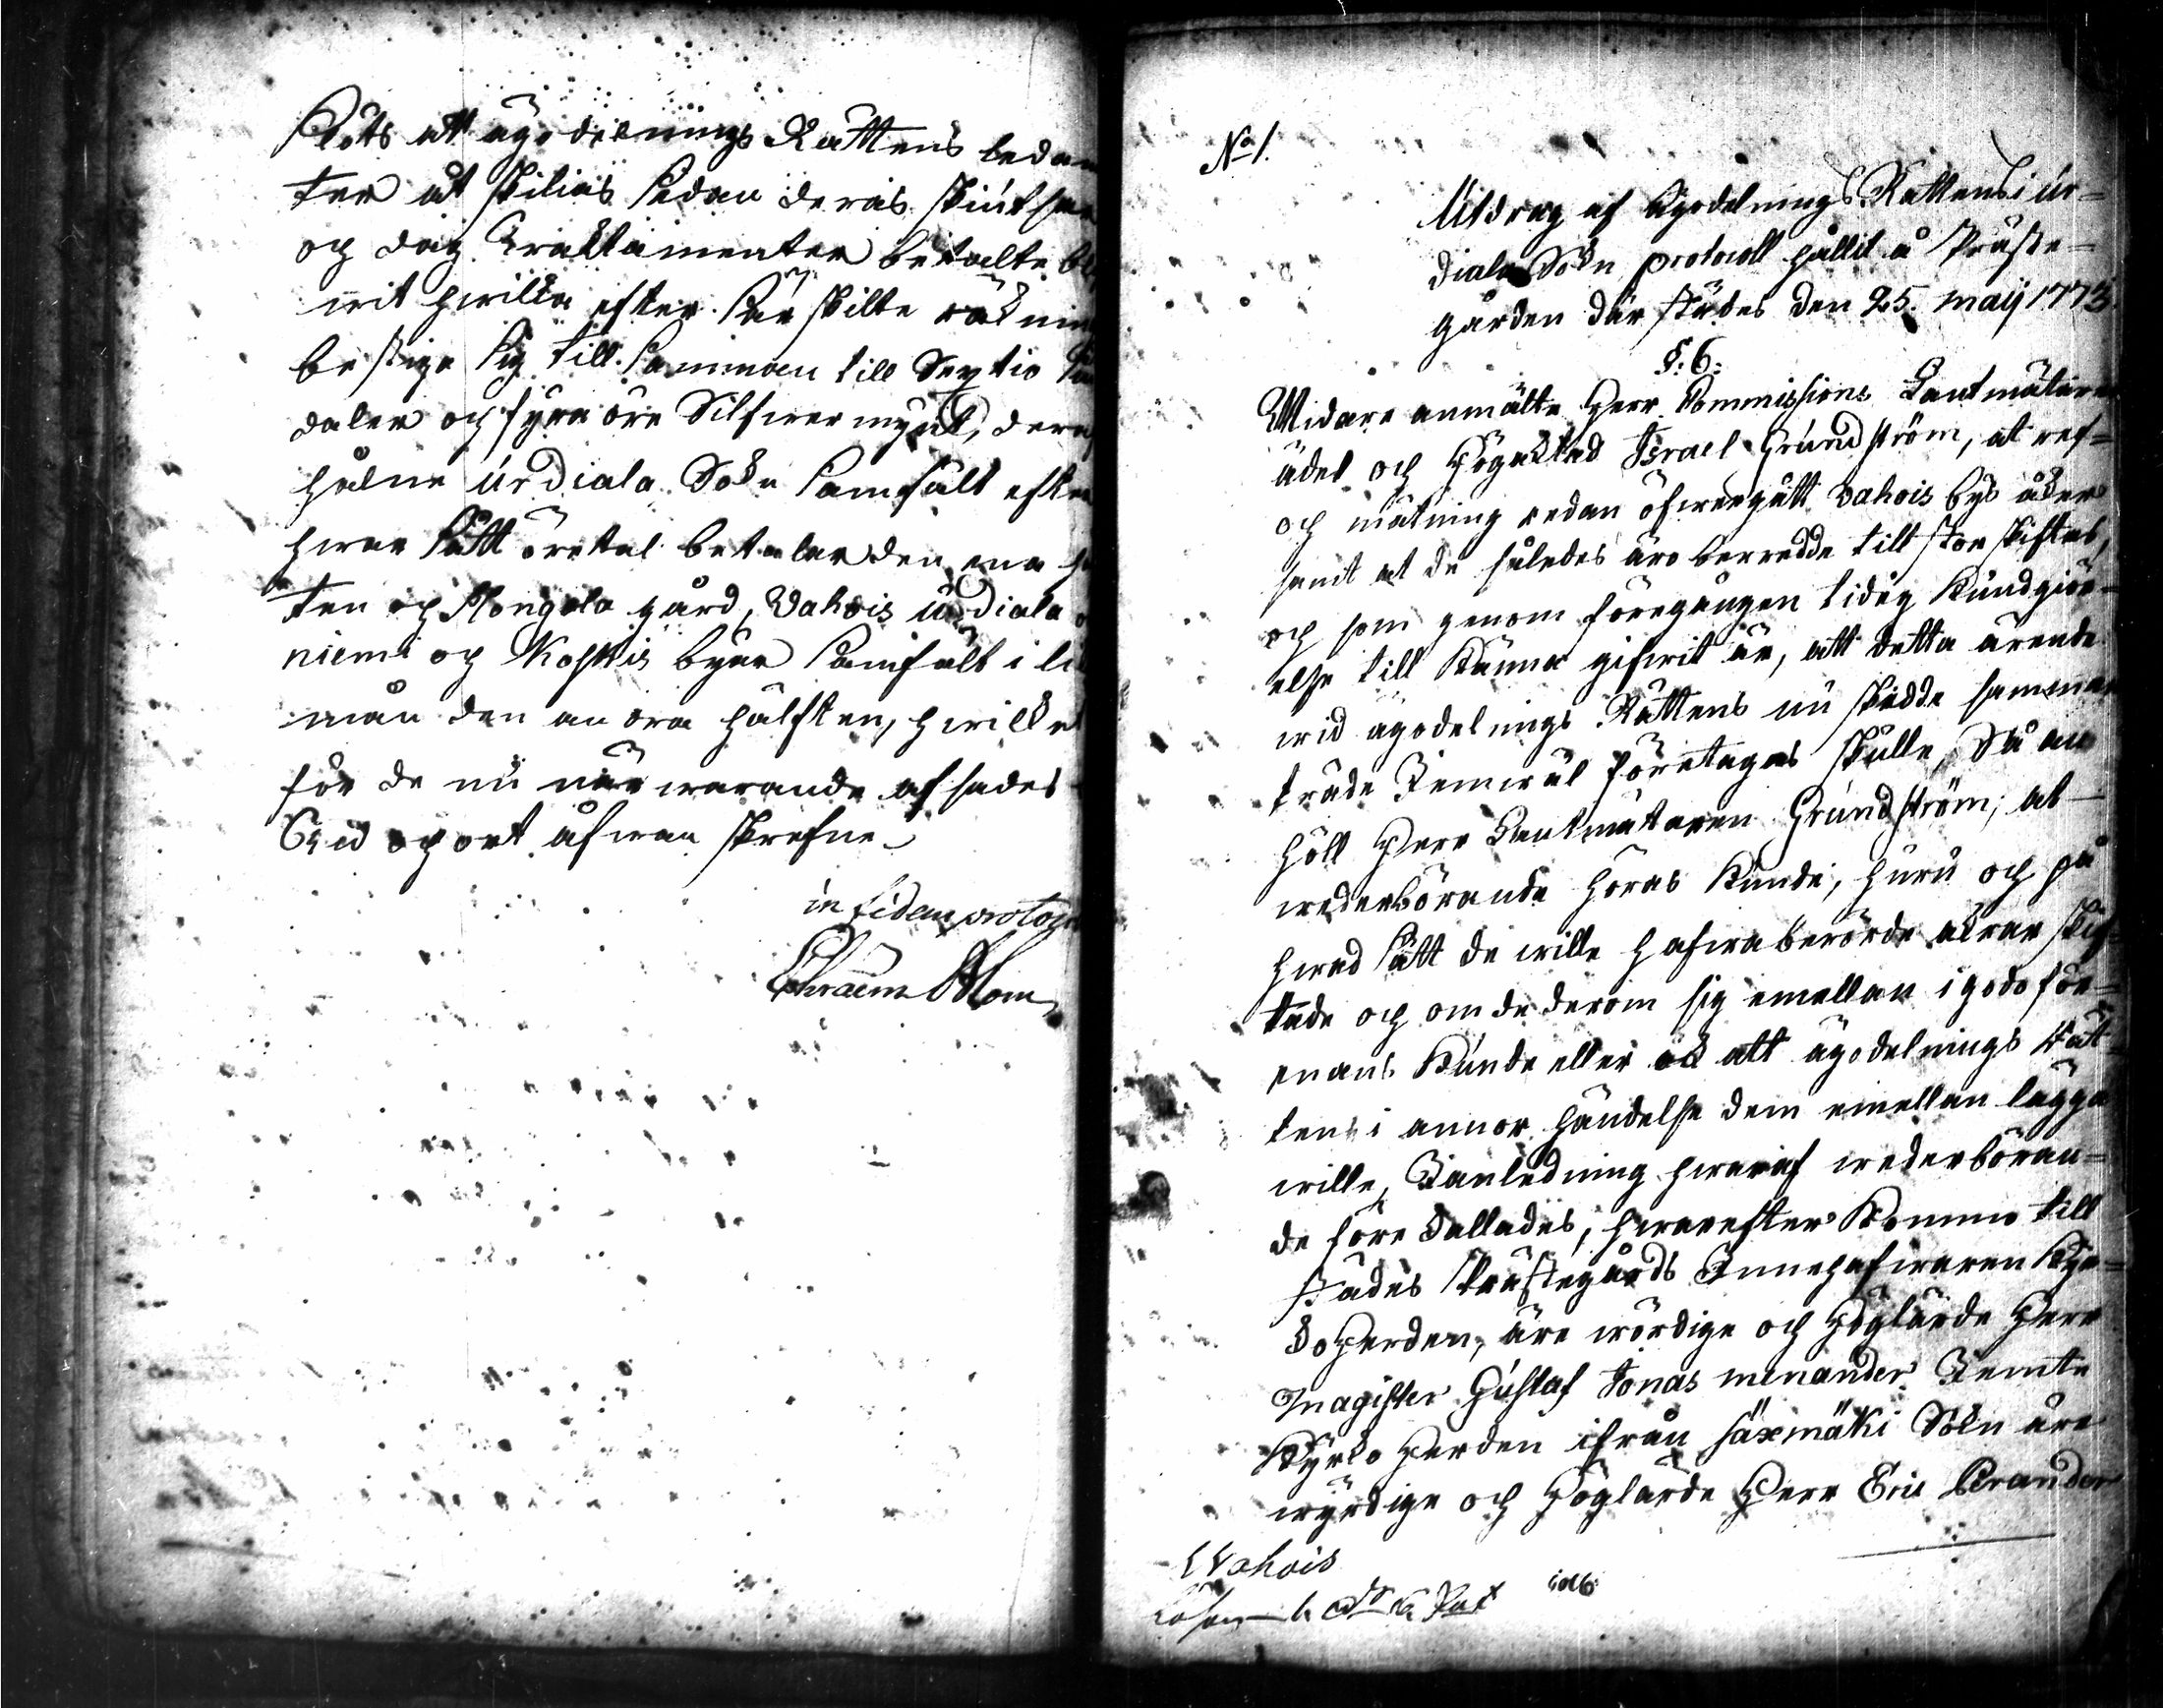 Löts att ägodelnings Rättens leda
ter åt skilias sedan deras skiuts
och dag Tractamenter betalte
wit hwilka efter särskilte räkning
bestiga sig till samman till Sextio
daler och fyra öre Silfwermynt, deraf
halne Urdiala Sokn samfält efter
hwar sått öretal betalar den ena
ten och Hongola gård, Vahois Urdiala
niemi och Koskis byar samfält i
mån den andra hälften, hwilket
för de nu närwarande afsades
Tid och ort åfwan skrefne
in fidem protoc
Ephraim Blom
No 1.
Utdrag af Ägodelnings Rättens i Ur=
diala Sokn protocoll hållit å Präste=
gården där städes den 25. maij 1773
§: 6:
Widare anmälte Herr Commissions Lantmätaren
ädel och Högaktad Israel Grundström, at ref=
och mätning redan öfwergått Vahois bys åker
samt at de således äro beredde till storskiftes,
och som genom föregången tidig Kundgiör=
else till Känna gifwit är, att detta ärende
wid ägodelnings Rättens nu skedde samman
träde Jemwäl företagas skulle, Så an
höll Herr Lantmätaren Grundström, at
wederbörande höras Kunde, huru och på
hwad sätt de wille hafwa berörde åkrar skif=
tade och om de derom sig emellan i godo för=
enans Kunde eller ok att ägodelnings Rät=
ten i annor händelse dem emellan lägga
wille, I anledning hwaraf wederböran=
de före kallades, hwarefter Kommo till
städes Prästegårds Innehafwaren Kyr=
koherden, äre wördige och Höglärde Herr
Magister Gustaf Jonas menander Jemte
Kyrkoherden ifrån Säxmäki Sokn äre
wyrdige och Höglärde Herr Eric Prander
Wahois